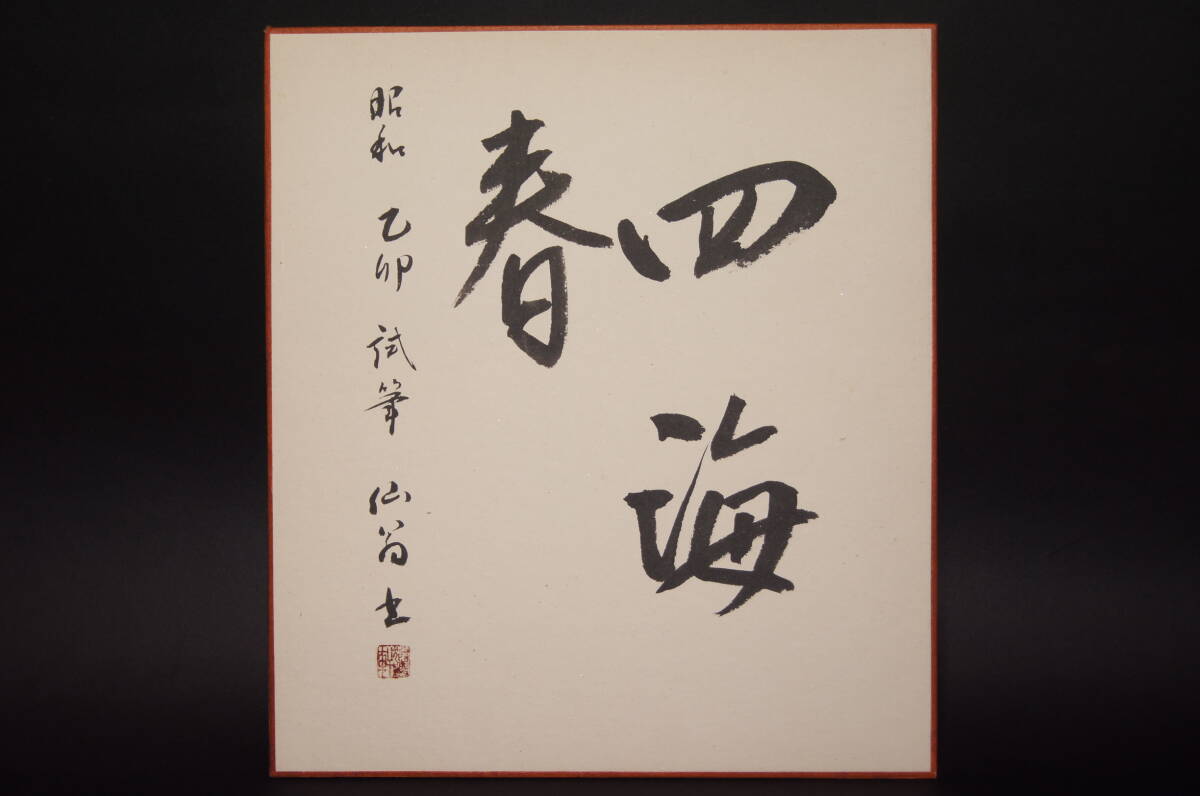 四海
春
昭和 乙卯 試筆 仙翁書